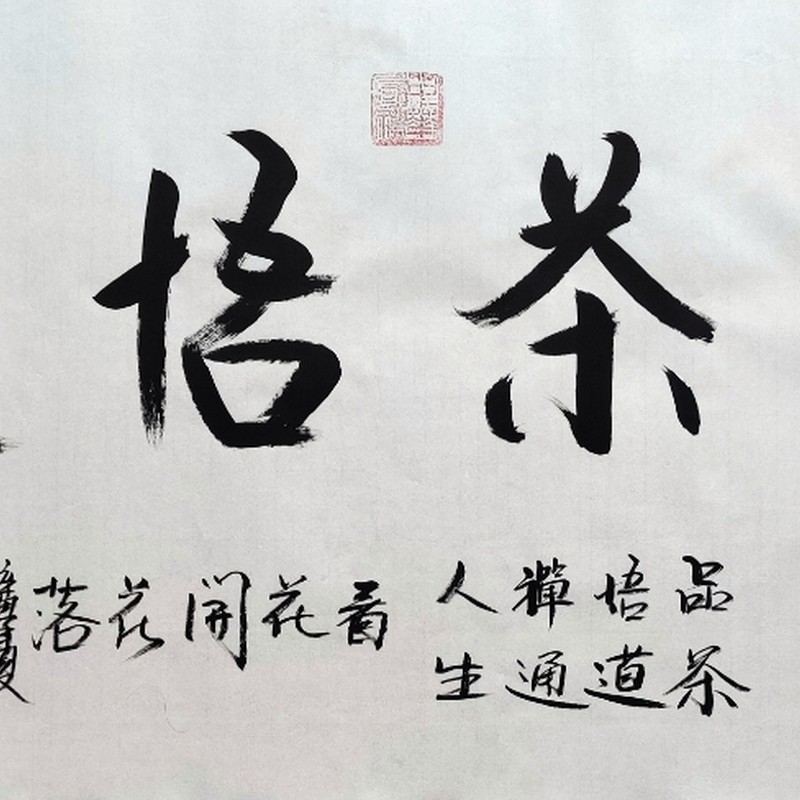 茶悟
品茶
悟道
禪通
人生
看花開花落